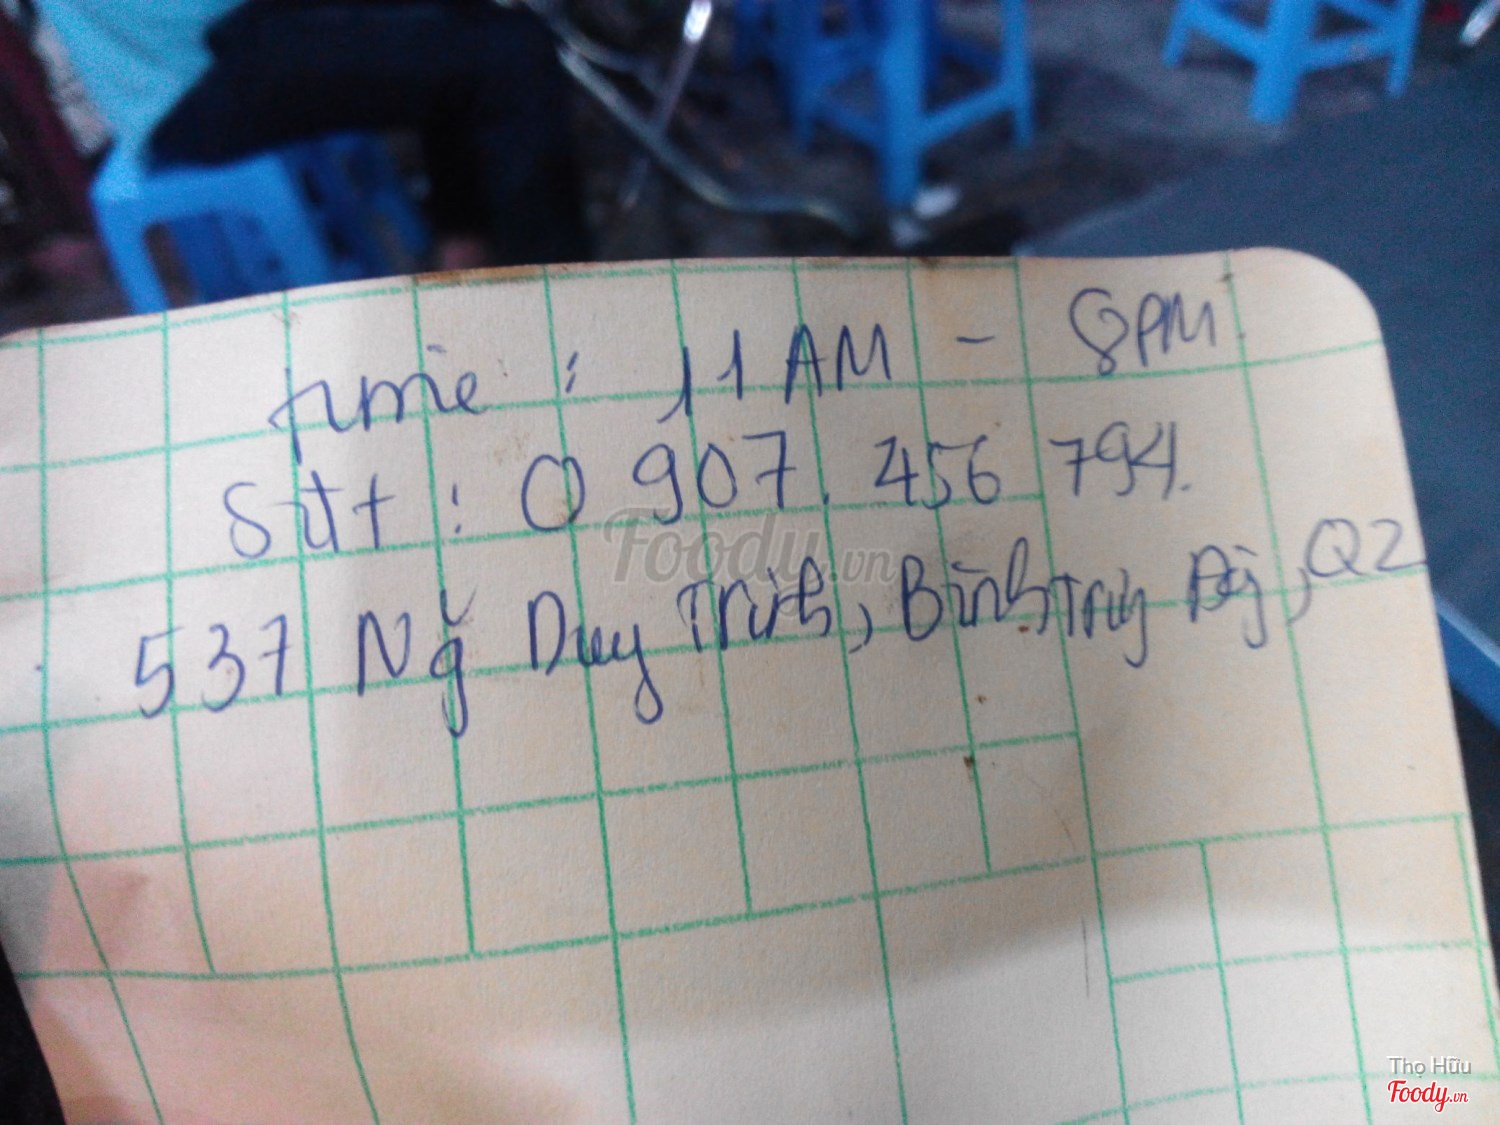 time : 11 AM - 8 PM
Sđt : 0 907. 456 794.
537 Ng̃ Duy Trinh, Bình Trưng Đg, Q2
Foody.vn
Thọ Hữu
Foody.vn